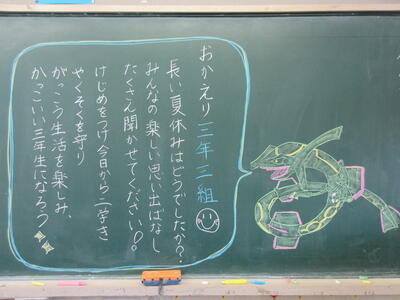 おかえり三年三組
長い夏休みはどうでしたか？
みんなの楽しい思い出ばなし
たくさん聞かせてください！。
けじめをつけ今日から二学き
やくそくを守り
がっこう生活を楽しみ、
かっこいい三年生になろう